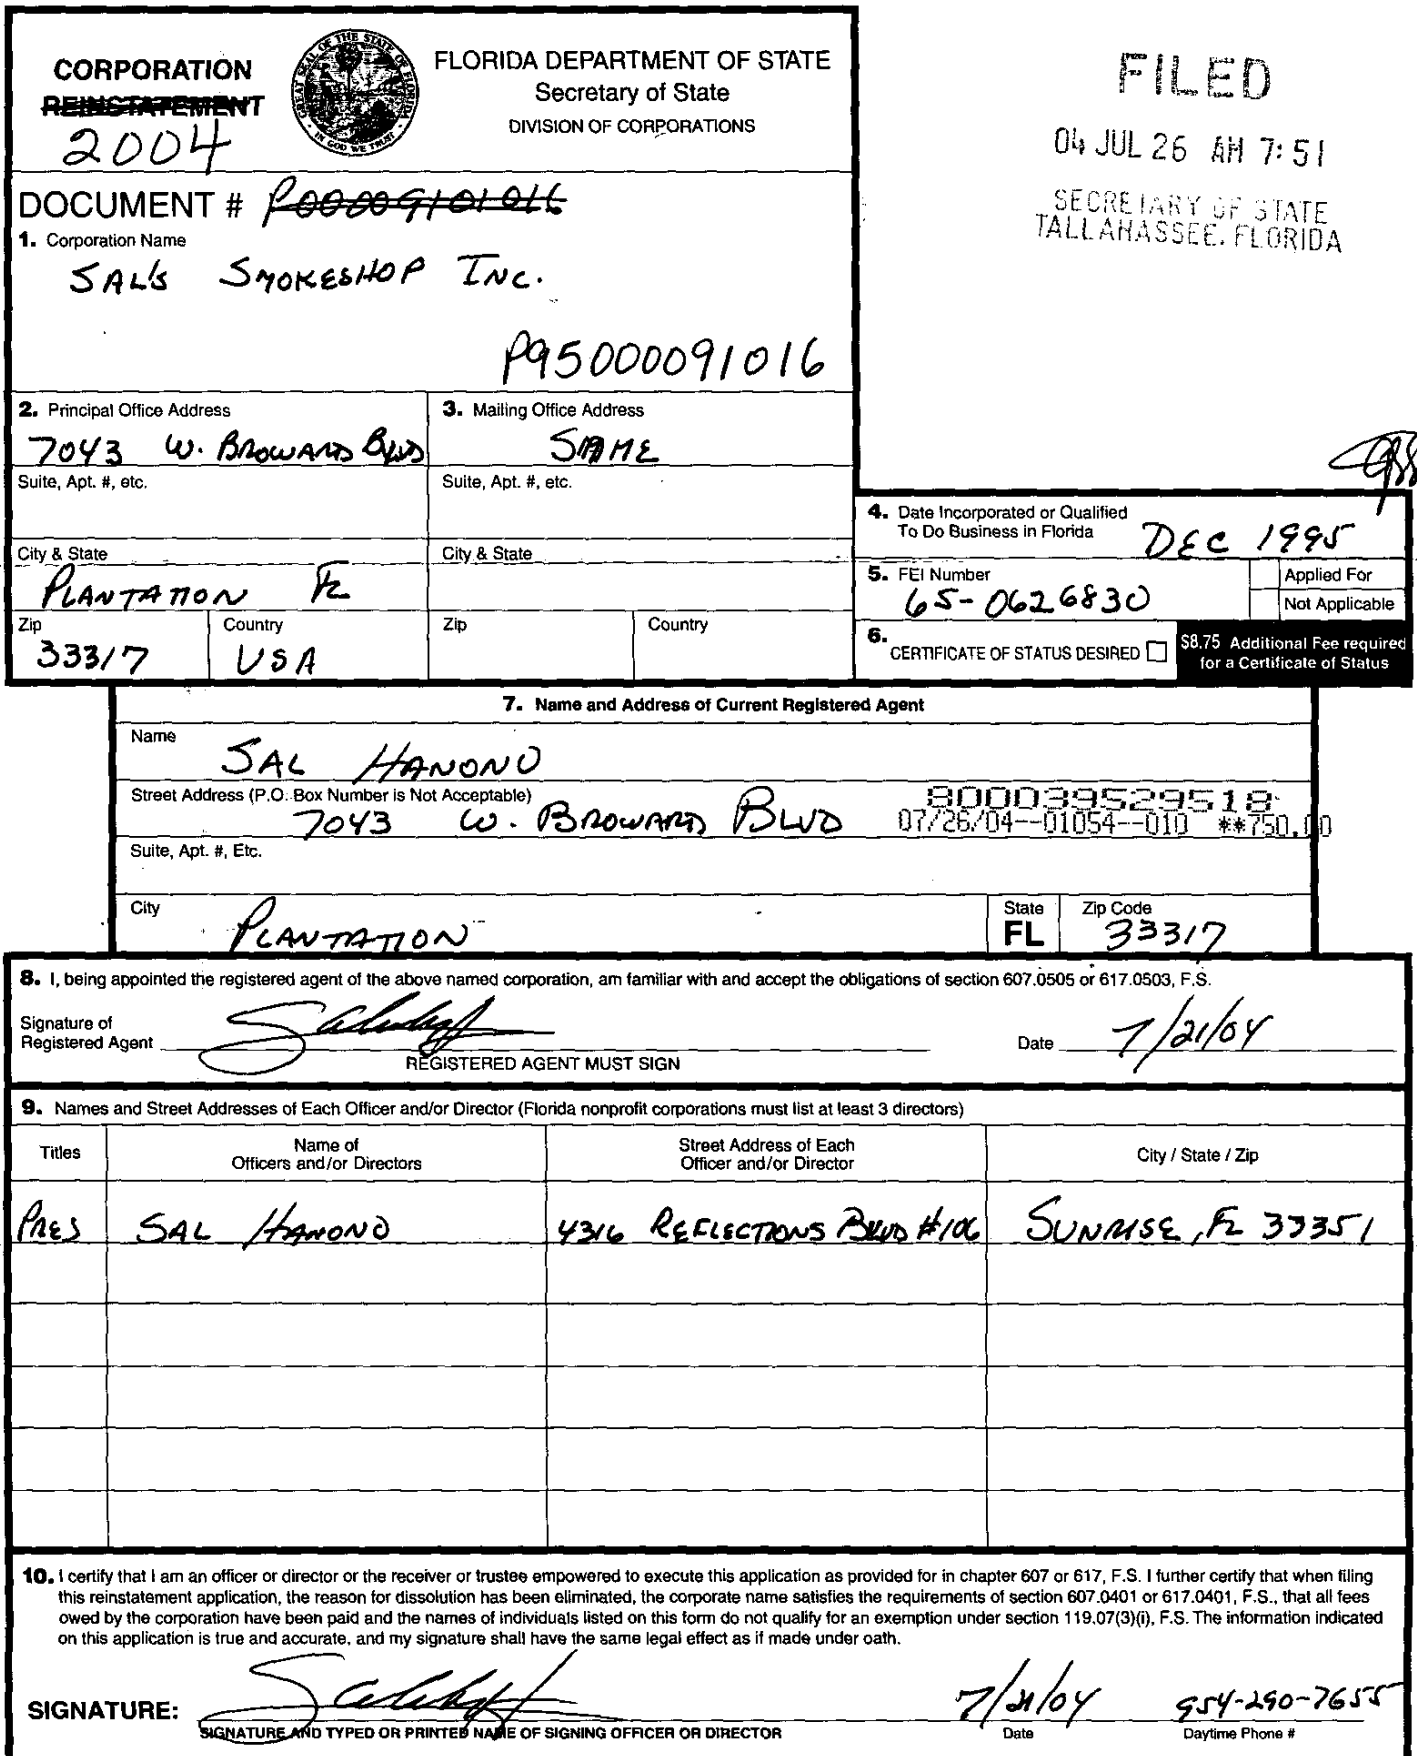 CORPORATION
REINSTATEMENT
2004
GREAT SEAL OF THE STATE OF FLORIDA
IN GOD WE TRUST
FLORIDA DEPARTMENT OF STATE
Secretary of State
DIVISION OF CORPORATIONS
FILED
04 JUL 26 AM 7:51
SECRETARY OF STATE
TALLAHASSEE, FLORIDA
DOCUMENT #
1. Corporation Name
SAL'S SMOKESHOP INC.
P95000091016
2. Principal Office Address
7043 W. BROWARD BLVD
3. Mailing Office Address
SAME
Suite, Apt. #, etc.
Suite, Apt. #, etc.
City & State
PLANTATION FL
City & State
Zip
33317
Country
USA
Zip
Country
4. Date Incorporated or Qualified
To Do Business in Florida
DEC 1995
5. FEI Number
65-0626830
Applied For
Not Applicable
6. CERTIFICATE OF STATUS DESIRED
$8.75 Additional Fee required
for a Certificate of Status
7. Name and Address of Current Registered Agent
Name
SAL HANONO
Street Address (P.O. Box Number is Not Acceptable)
7043 W. BROWARD BLVD
800039529518
07/26/04--01054--010 **750.00
Suite, Apt. #, Etc.
City
PLANTATION
State
FL
Zip Code
33317
8. I, being appointed the registered agent of the above named corporation, am familiar with and accept the obligations of section 607.0505 or 617.0503, F.S.
Signature of
Registered Agent
REGISTERED AGENT MUST SIGN
Date 7/21/04
9. Names and Street Addresses of Each Officer and/or Director (Florida nonprofit corporations must list at least 3 directors)
Titles
Name of
Officers and/or Directors
Street Address of Each
Officer and/or Director
City / State / Zip
PRES SAL HANONO 4316 REFLECTIONS BLVD #106 SUNRISE, FL 33351
10. I certify that I am an officer or director or the receiver or trustee empowered to execute this application as provided for in chapter 607 or 617, F.S. I further certify that when filing
this reinstatement application, the reason for dissolution has been eliminated, the corporate name satisfies the requirements of section 607.0401 or 617.0401, F.S., that all fees
owed by the corporation have been paid and the names of individuals listed on this form do not qualify for an exemption under section 119.07(3)(i), F.S. The information indicated
on this application is true and accurate, and my signature shall have the same legal effect as if made under oath.
SIGNATURE:
SIGNATURE AND TYPED OR PRINTED NAME OF SIGNING OFFICER OR DIRECTOR
7/21/04
Date
954-290-7655
Daytime Phone #